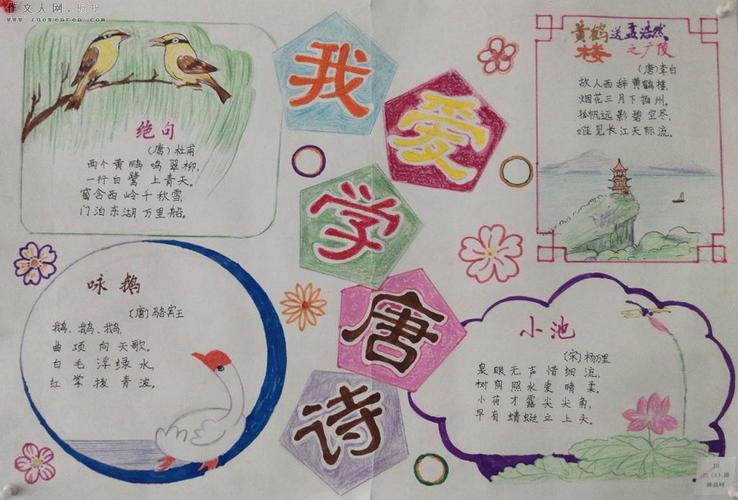 作文人网
www.zuowenren.com
我爱学唐诗
绝句
(唐)杜甫
两个黄鹂鸣翠柳,
一行白鹭上青天。
窗含西岭千秋雪,
门泊东湖万里船。
黄鹤楼送孟浩然之广陵
(唐)李白
故人西辞黄鹤楼,
烟花三月下扬州。
孤帆远影碧空尽,
唯见长江天际流。
咏鹅
(唐)骆宾王
鹅、鹅、鹅,
曲项向天歌。
白毛浮绿水,
红掌拨青波。
小池
(宋)杨万里
泉眼无声惜细流,
树阴照水爱晴柔。
小荷才露尖尖角,
早有蜻蜓立上头。